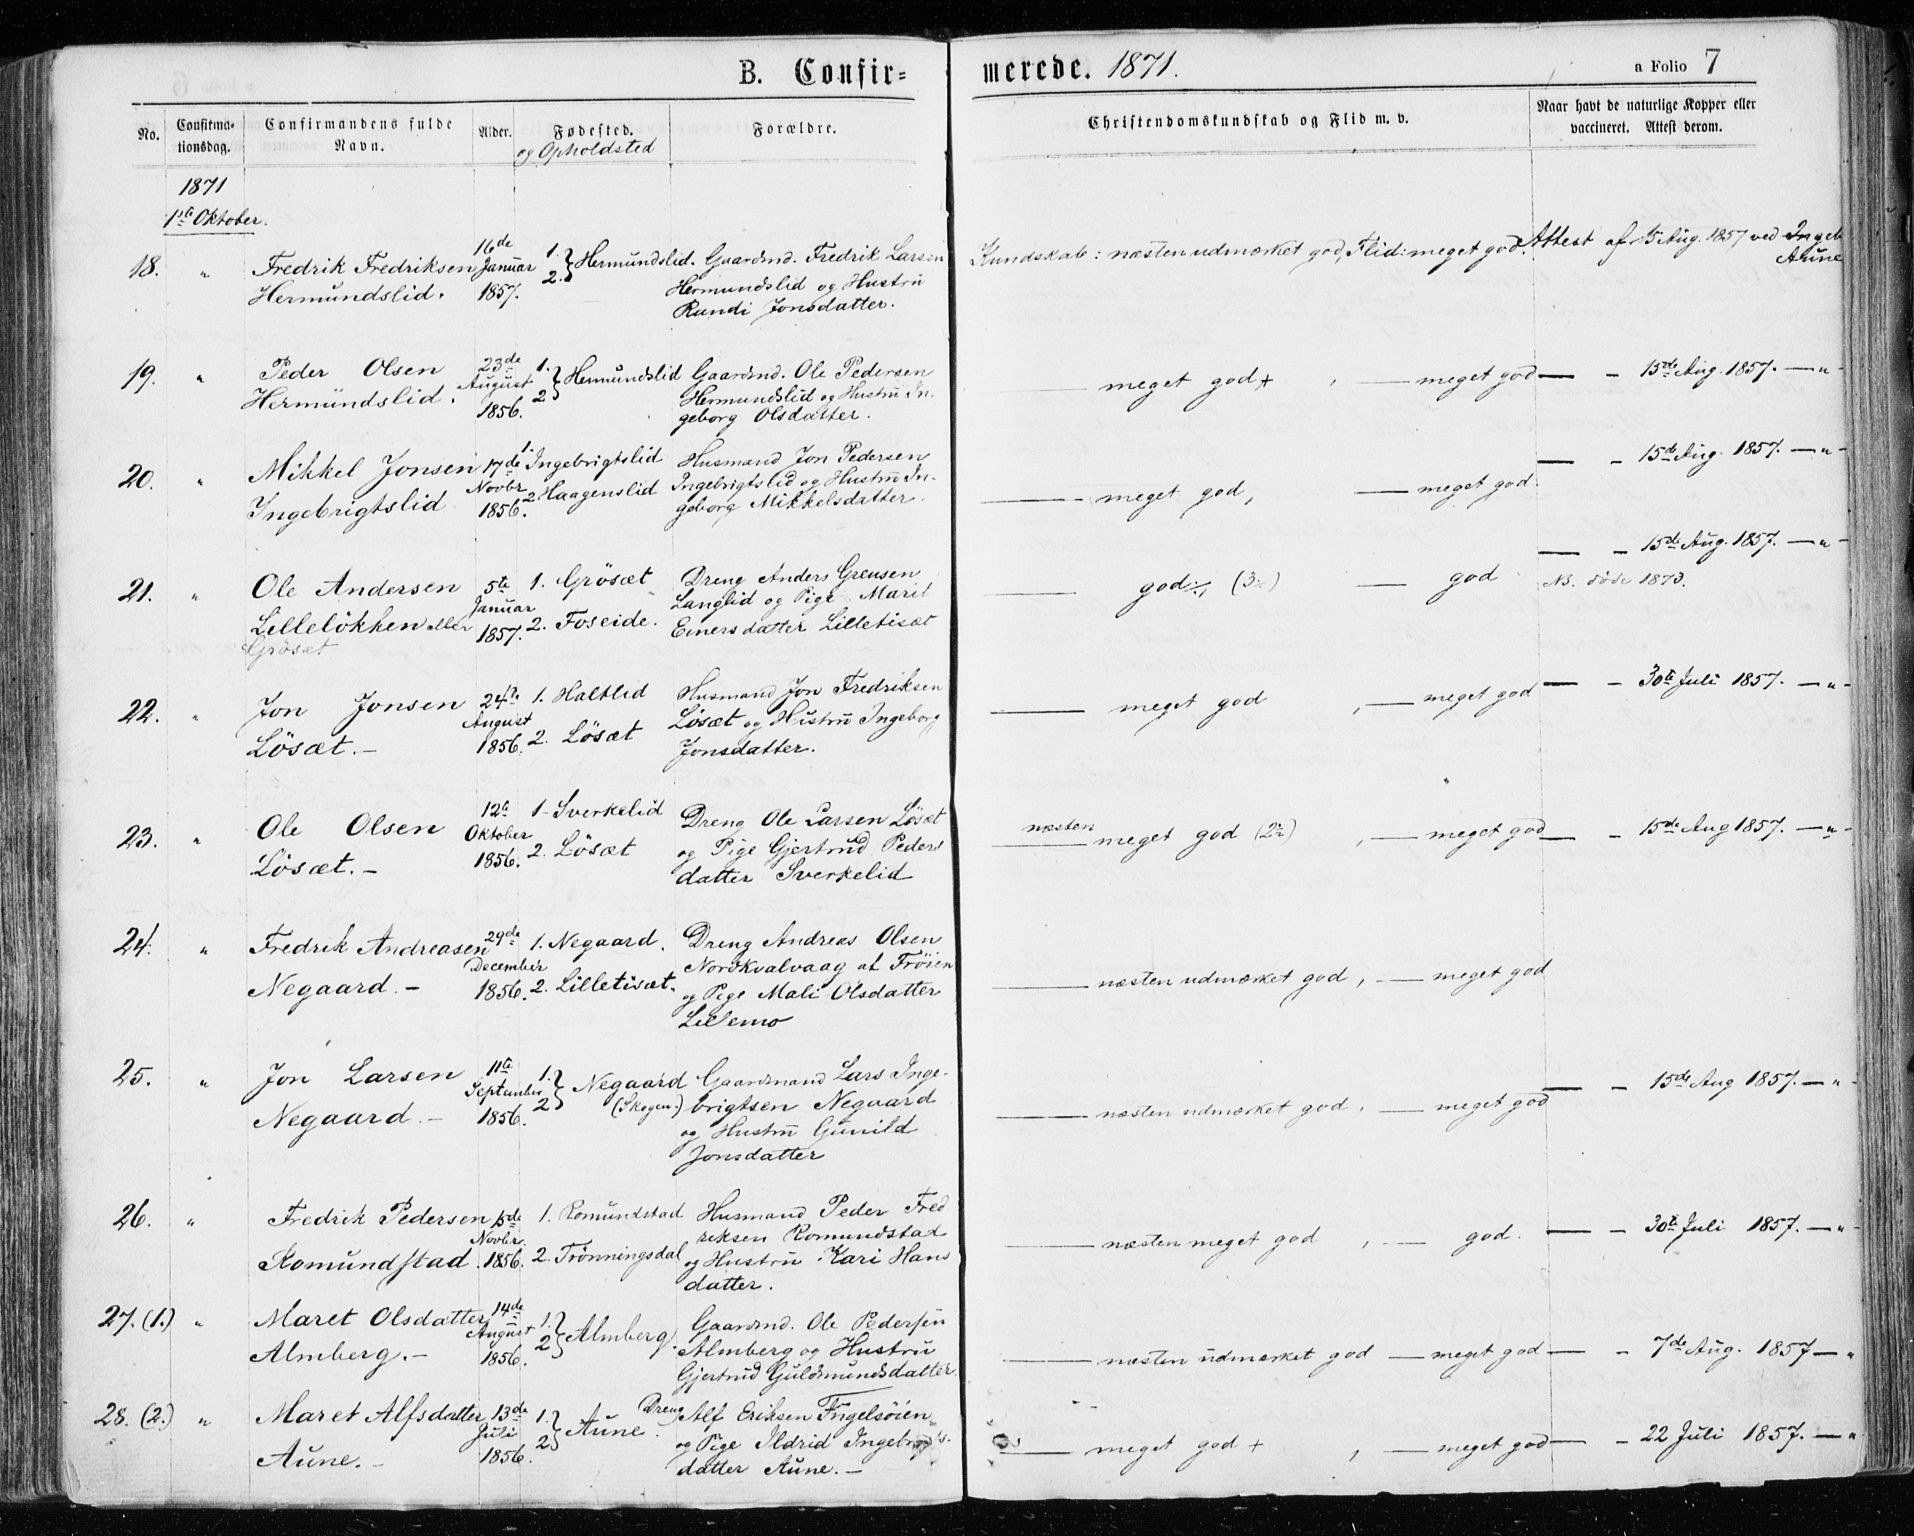 B. Confir=
merede. 1871.
a Folio 7
No.
Confirma-
tionsdag.
Confirmandens fulde
Navn.
Alder.
Fødested.
og Opholdsted
Forældre.
Christendomskundskab og Flid m. v.
Naar havt de naturlige Kopper eller
vaccineret. Attest derom.
1871
1ste Oktober.
18.
"
Fredrik Fredriksen
Hermundslid.
16de
Januar
1857.
1.
2. } Hermundslid.
Gaardmd. Fredrik Larsen
Hermundslid og Hustru
Randi Jonsdatter.
Kundskab: næsten udmærket god, Flid: meget god.
Attest af 15 Aug. 1857 ved Ingeb
Aune
19.
"
Peder Olsen
Hermundslid.
23de
August
1856.
1.
2 } Hermundslid
Gaardmd. Ole Pedersen
Hermundslid og Hustru In-
geborg Olsdatter.
— meget god +, — meget god
— - 15de Aug. 1857. — " -
20.
"
Mikkel Jonsen
Ingebrigtslid
17de
Novbr
1856.
1. Ingebrigtslid
2. Haagenslid
Husmand Jon Pedersen
Ingebrigtslid og Hustru In-
geborg Mikkelsdatter.
— meget god, — meget god.
— - 15de Aug. 1857. — " -
21.
"
Ole Andersen
Lilleløkken eller
Grøsæt
5te
Januar
1857.
1. Grøsæt
2. Foseide.
Dreng Anders Greusen
Langlid og Pige Marit
Einersdatter Lilletisæt
— god÷, (3÷) — god
— - 15de Aug. 1857. — " -
NB. døde 1873.
22.
"
Jon Jonsen
Løsæt. -
24de
August
1856.
1. Haltlid
2. Løsæt
Husmand Jon Fredriksen
Løsæt og Hustru Ingeborg
Jonsdatter.
— meget god, — meget god
— - 30te Juli 1857. — " -
23.
"
Ole Olsen
Løsæt. -
12te
Oktober
1856.
1. Sverkelid
2. Løsæt
Dreng Ole Larsen Løsæt
og Pige Gjertrud Peders
datter Sverkelid
næsten
— meget god (2÷), — meget god
— - 15de Aug 1857. — " -
24.
"
Fredrik Andreasen
Negaard. -
29de
December
1856.
1. Negaard.
2. Lilletisæt.
Dreng Andreas Olsen
Nordkvalvaag af Frøien
og Pige Mali Olsdatter
Lillemo
— næsten udmærket god, — meget god
25.
"
Jon Larsen
Negaard. -
11te
September
1856.
1.
2 } Negaard
(Skogen.)
Gaardmand Lars Inge-
brigtsen Negaard
og Hustru Gunild
Jonsdatter
— næsten udmærket god, — meget god
— - 15de Aug 1857. — " -
26.
"
Fredrik Pedersen
Romundstad.
15de
Novbr.
1856.
1. Romundstad
2. Trønningsdal
Husmand Peder Fred
riksen Romundstad
og Hustru Kari Hans
datter.
— næsten meget god, — god.
— - 30te Juli 1857. — " -
27. (1.)
"
Maret Olsdatter
Almberg. -
14de
August
1856.
1.
2 } Almberg.
Gaardmd. Ole Pedersen
Almberg og Hustru
Gjertrud Guldmundsdatter.
— næsten udmærket god — meget god
— - 7de Aug. 1857 — "
28. (2.)
"
Maret Alfsdatter
Aune. -
13de
Juli
1856.
1.
2 } Aune.
Dreng Alf Eriksen Fugelsøien
og Pige Ildrid Ingebrigts-
datter Aune. -
— meget god +, — meget god
— - 22 Juli 1857. — "